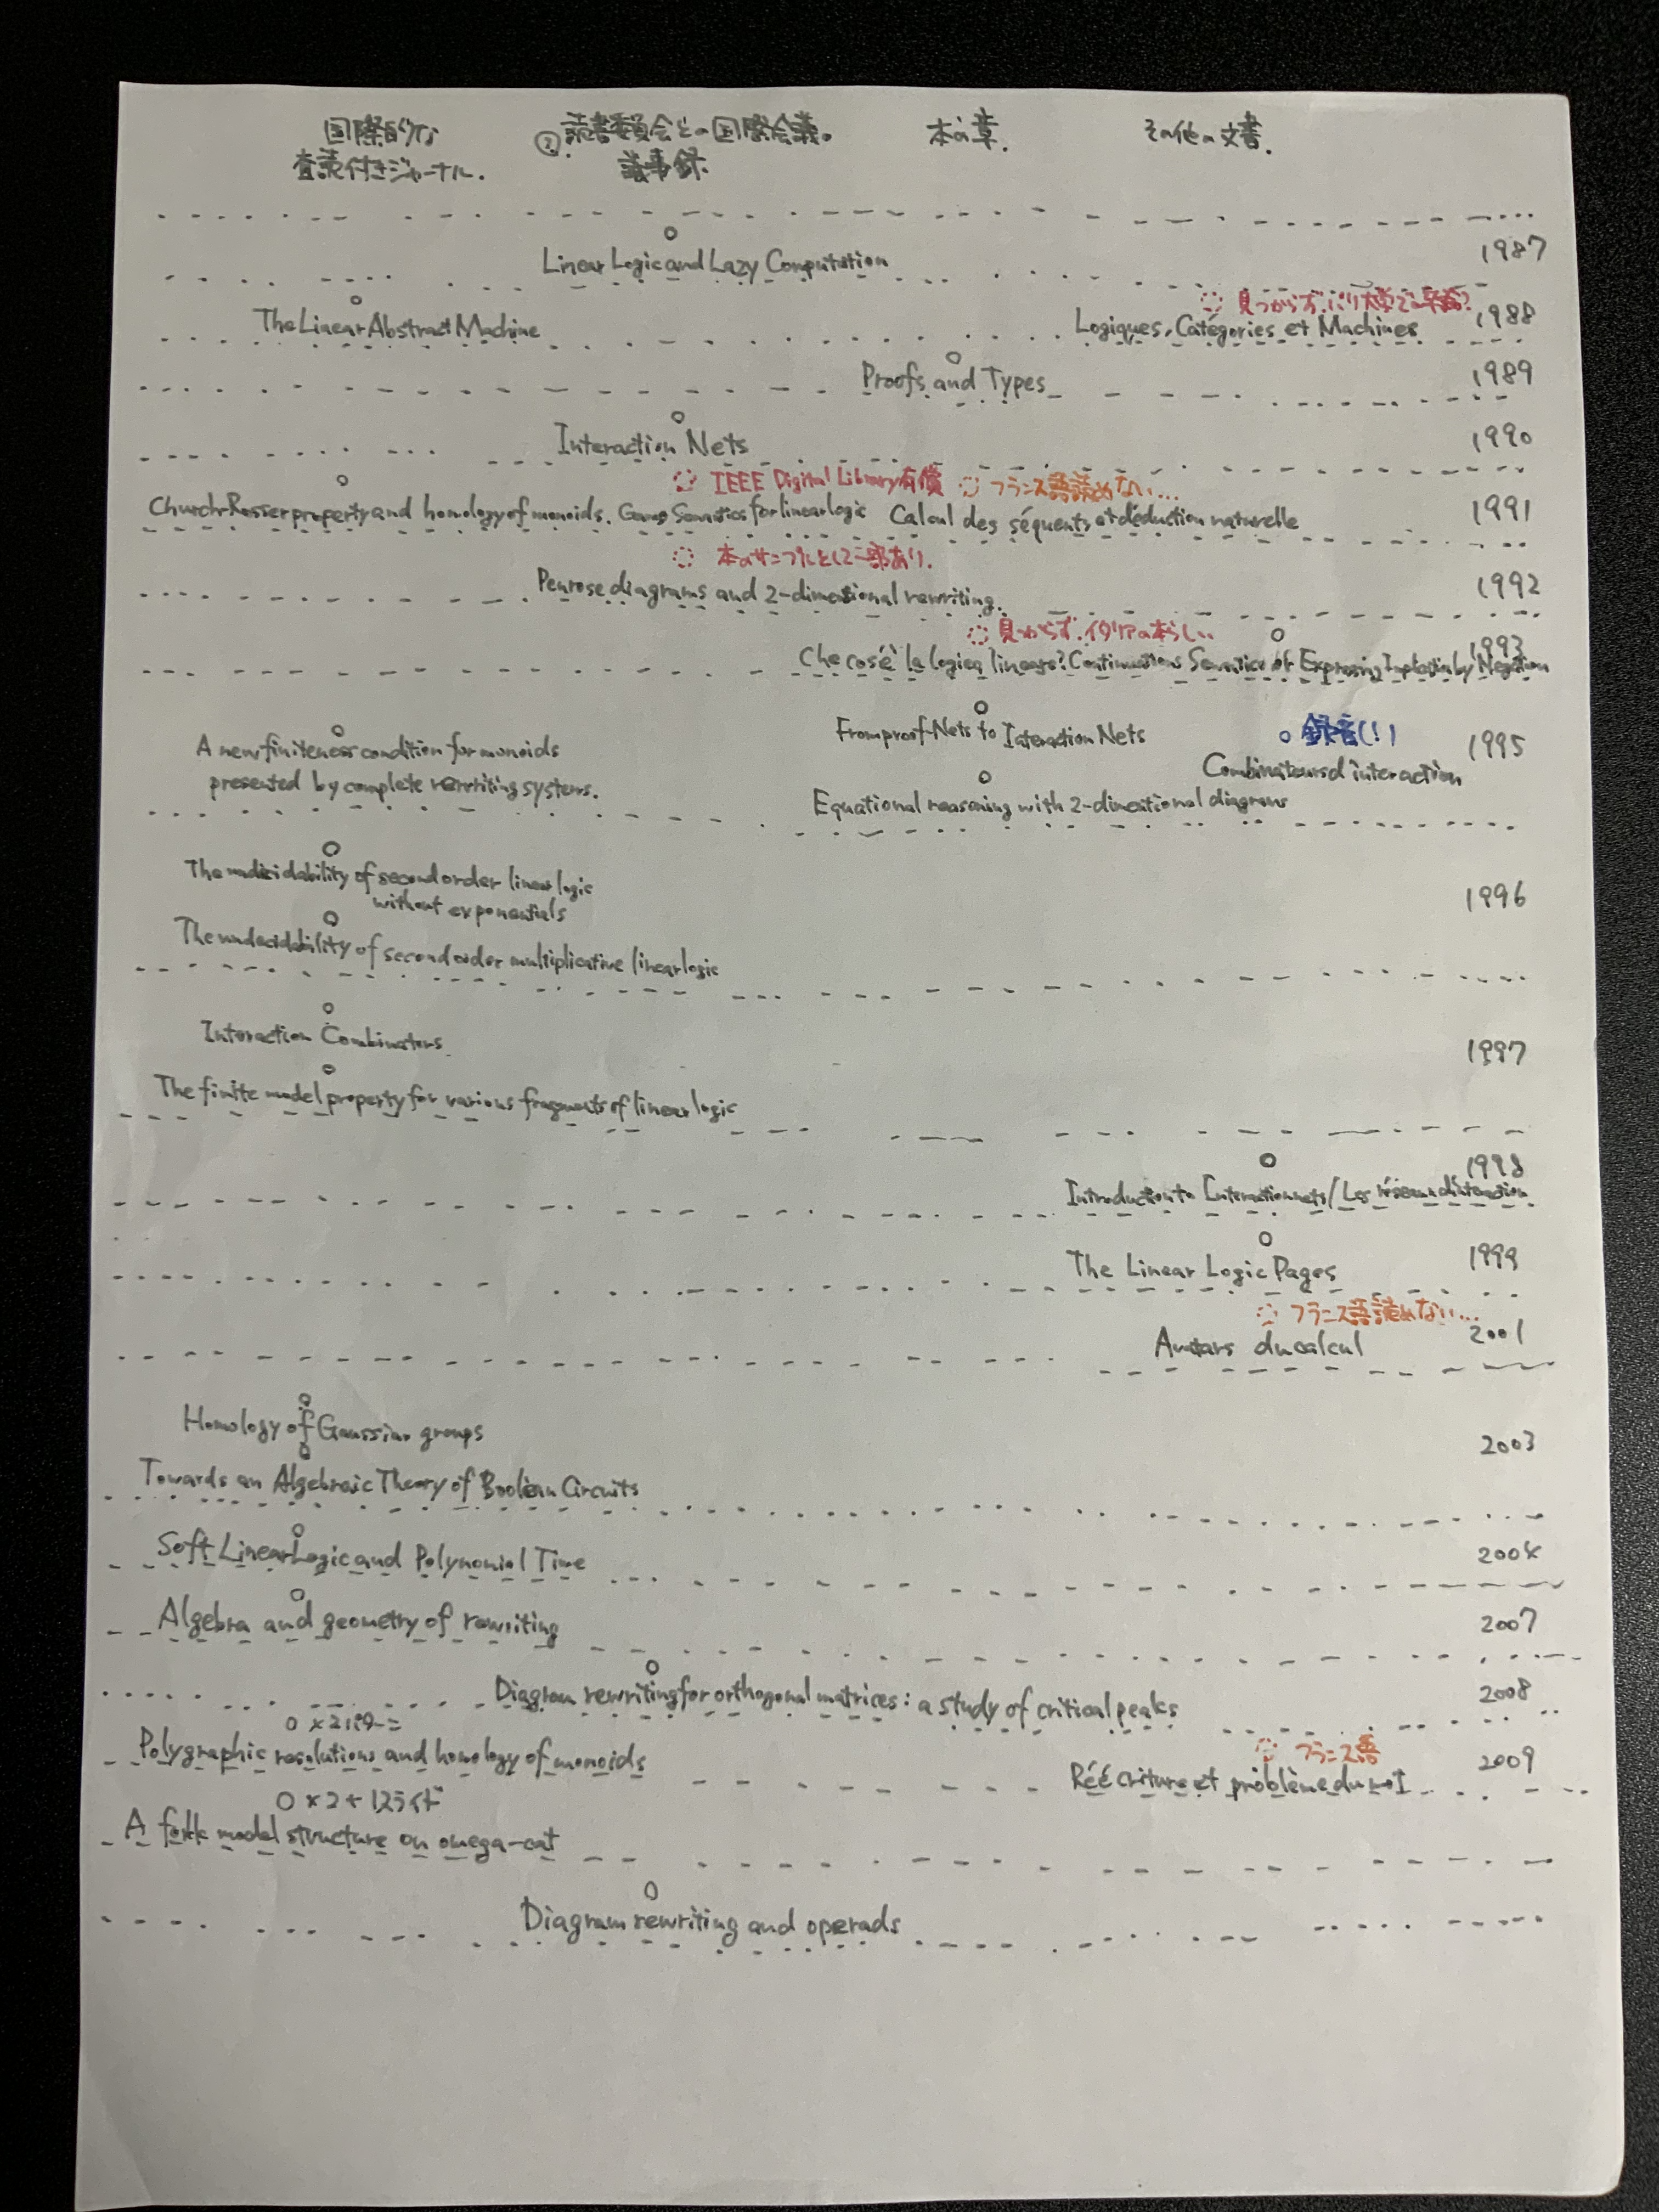 国際的な 査読付きジャーナル.
② 読書委員会との国際会議。 議事録.
本の章.
その他の文書.
Linear Logic and Lazy Computation 1987
見つからず.パリ大学で
The Linear Abstract Machine Logiques, Catégories et Machines 1988
Proofs and Types 1989
Interaction Nets 1990
IEEE Digital Library有償 フランス語読めない...
Church-Rosser property and homology of monoids. Game Semantics for linear logic Calcul des séquents et déduction naturelle 1991
本のサンプルとして一部あり.
Penrose diagrams and 2-dimensional rewriting. 1992
見つからず.イタリアの本らしい
Che cos'é la logica lineare? Continuations Semantics or Expressing Implication by Negation 1993
From proof-Nets to Interaction Nets 録音(!) 1995
A new finiteness condition for monoids Combinateurs d interaction
presented by complete rewriting systems. Equational reasoning with 2-dimentional diagrams
The undecidability of second order linear logic 1996
without exponentials
The undecidability of second order multiplicative linear logic
Interaction Combinators 1997
The finite model property for various fragments of linear logic
1998
Introduction to Interaction nets / Les réseaux d'interaction
The Linear Logic Pages 1999
フランス語読めない...
Avatars du calcul 2001
Homology of Gaussian groups 2003
Towards an Algebraic Theory of Boolean Circuits
Soft Linear Logic and Polynomial Time 2004
Algebra and geometry of rewriting 2007
Diagram rewriting for orthogonal matrices: a study of critical peaks 2008
○×2
フランス語
Polygraphic resolutions and homology of monoids Réécriture et problème du mot 2009
○×2+1スライド
A folk model structure on omega-cat
Diagram rewriting and operads